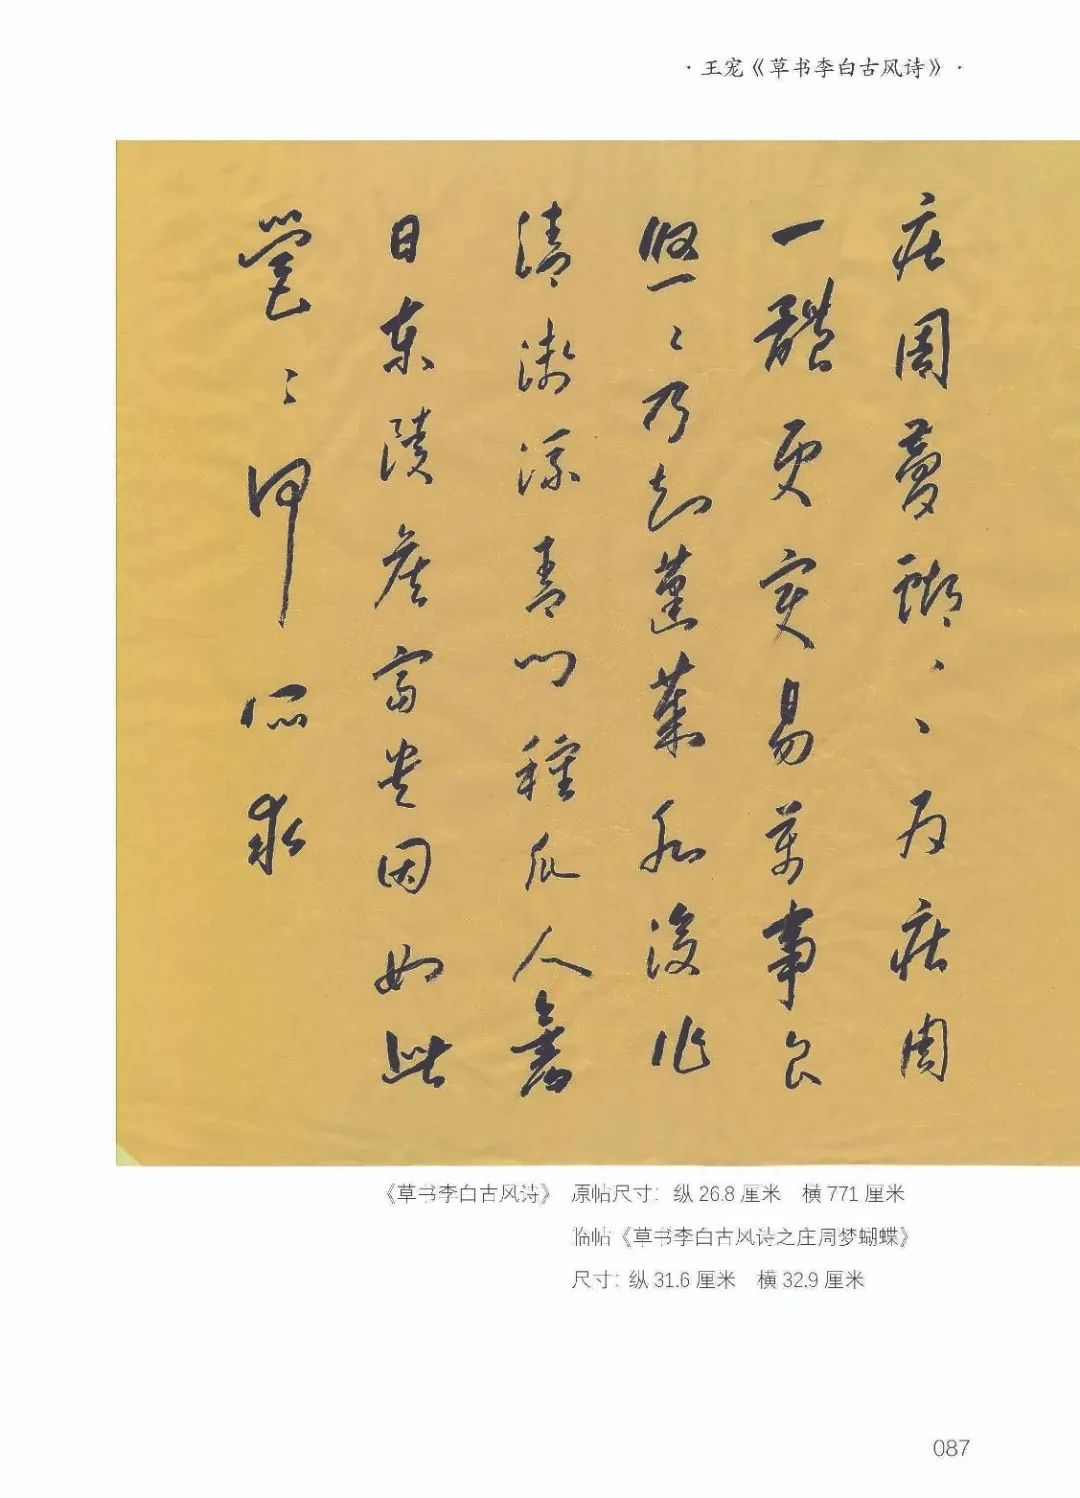 ·王宠《草书李白古风诗》·
庄周夢蝴〻〻為庄周
一體更變易萬事良
悠〻乃知蓬萊水復作
清淺流青門種瓜人舊
日東陵侯富貴因如此
營〻何所求
《草书李白古风诗》 原帖尺寸：纵 26.8 厘米 横 771 厘米
临帖《草书李白古风诗之庄周梦蝴蝶》
尺寸：纵 31.6 厘米 横 32.9 厘米
087